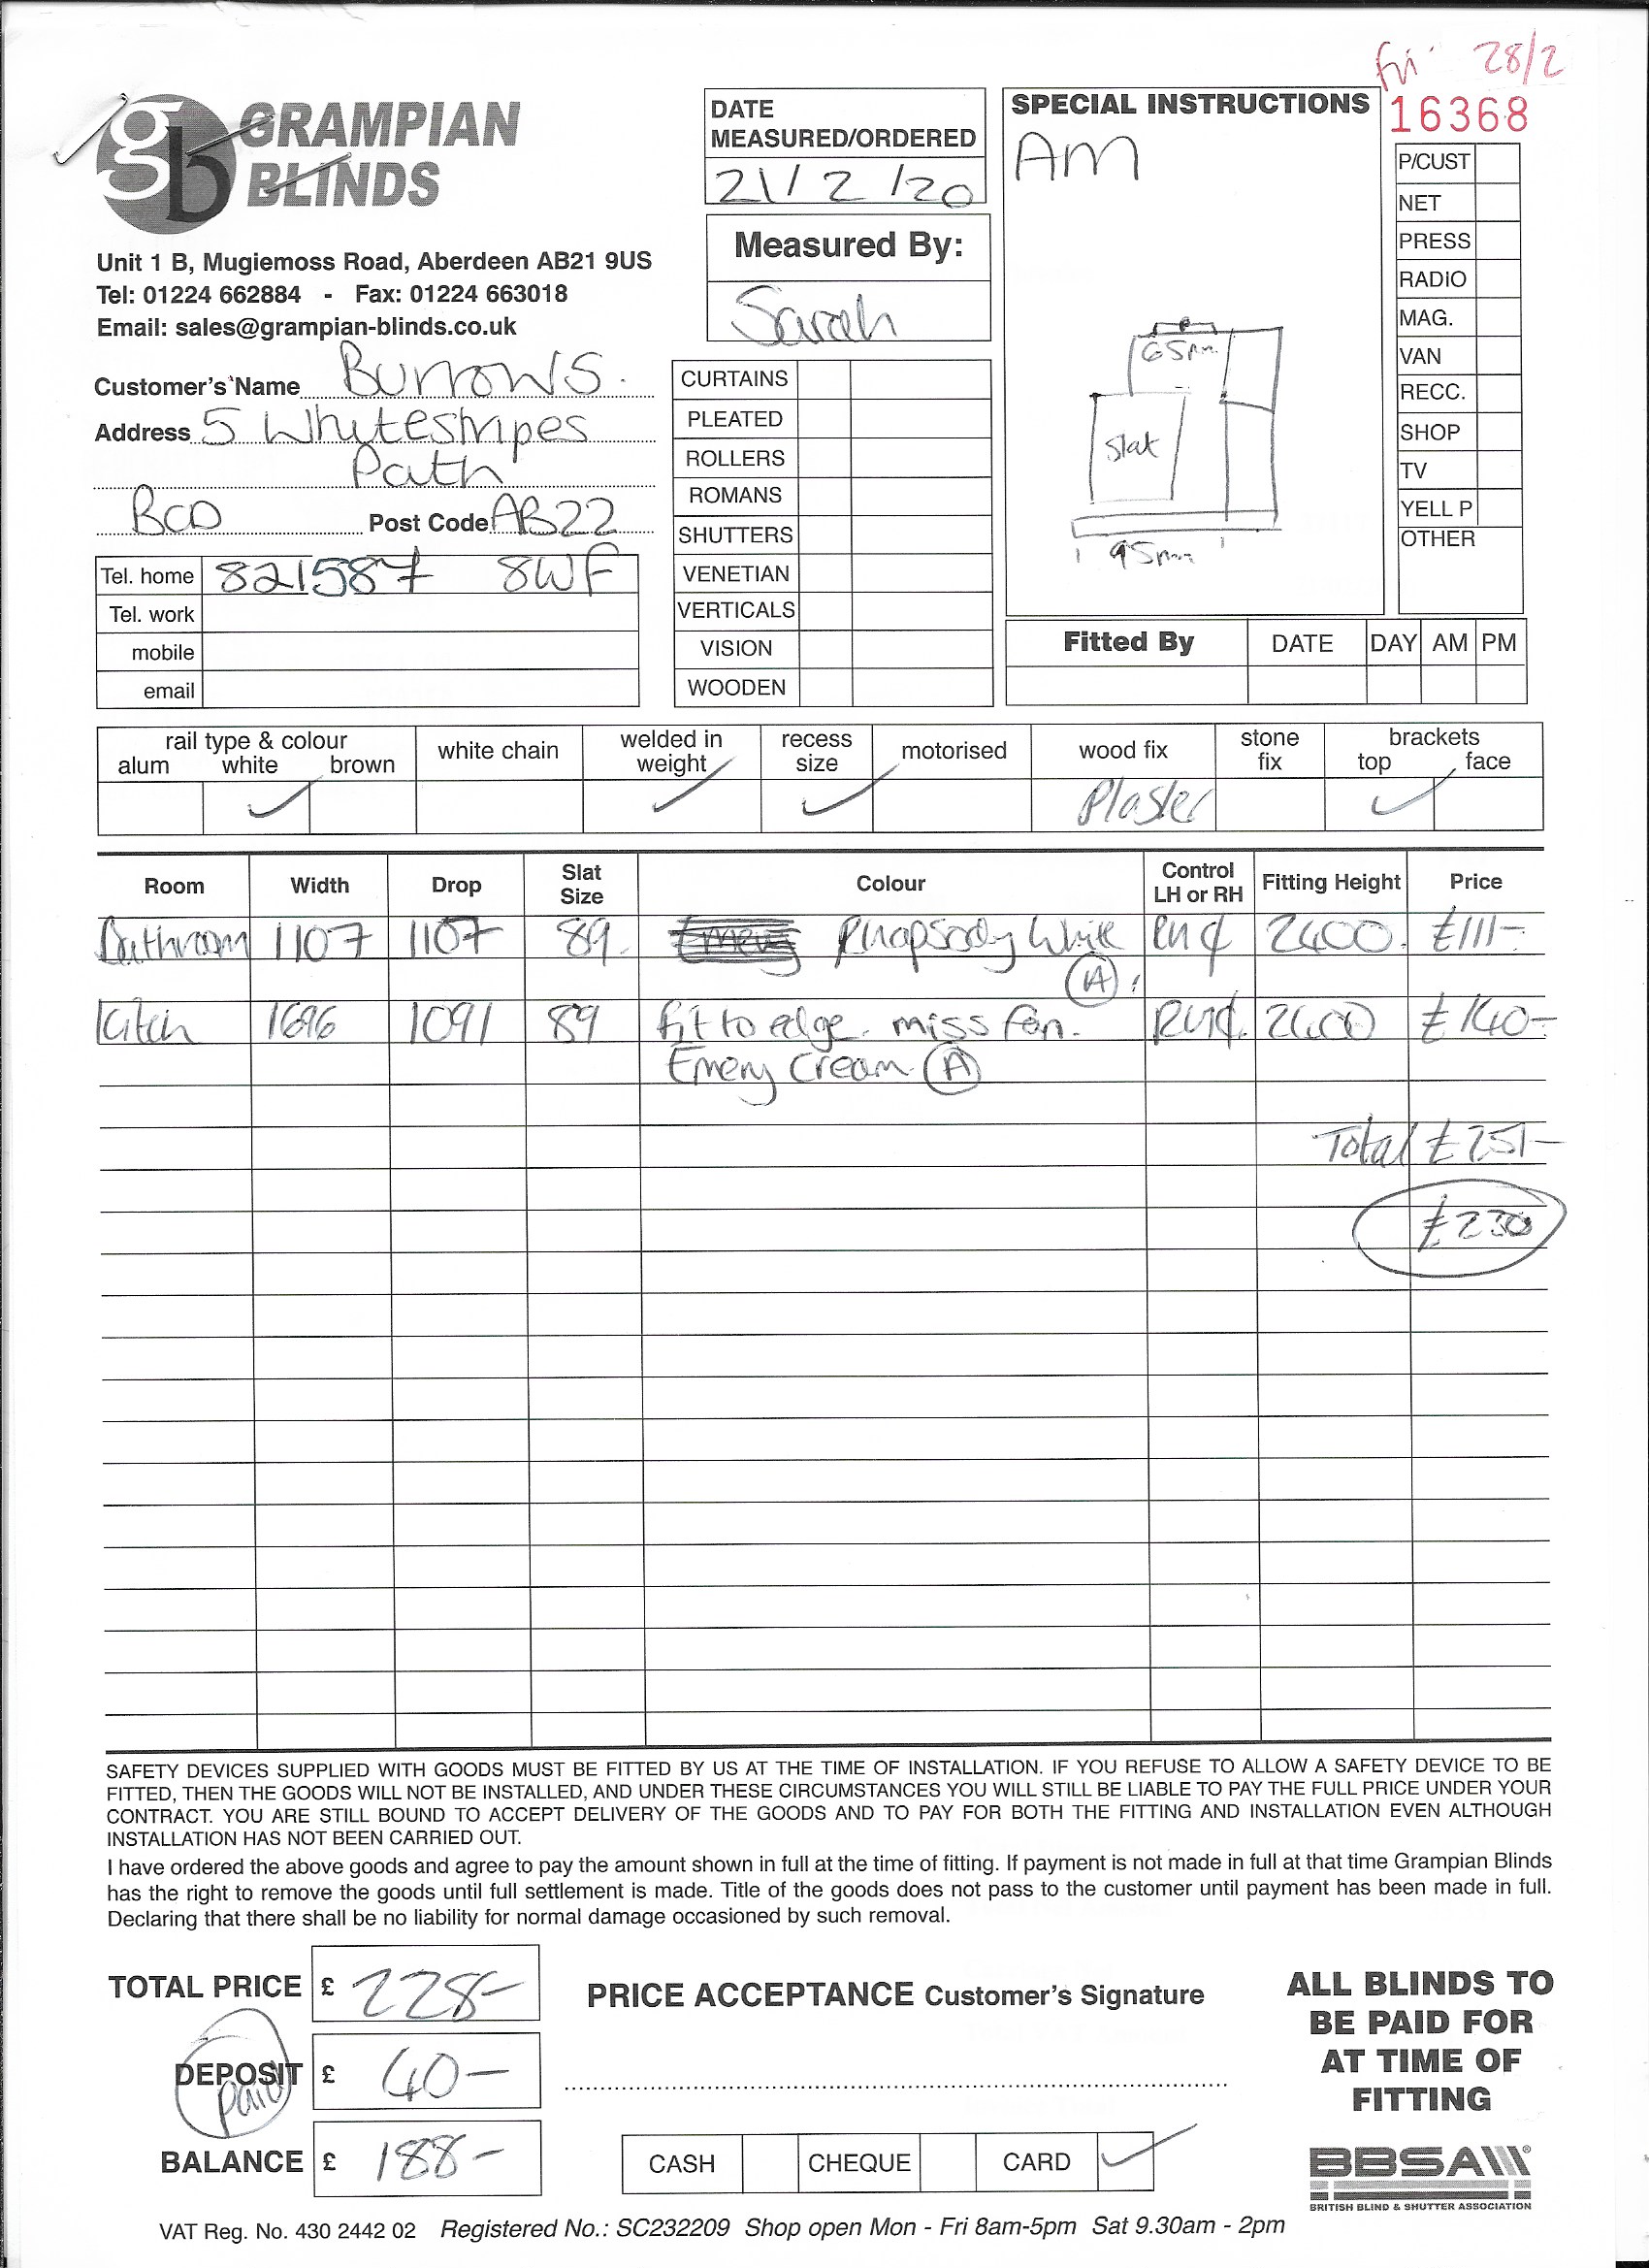 Fri 28/2
16368
gb GRAMPIAN
BLINDS
Unit 1 B, Mugiemoss Road, Aberdeen AB21 9US
Tel: 01224 662884 - Fax: 01224 663018
Email: sales@grampian-blinds.co.uk
Customer's Name Burrows.
Address 5 Whitestripes
Path
BOD Post Code AB22
Tel. home 821587 8WF
Tel. work
mobile
email
DATE
MEASURED/ORDERED
21/2/20
Measured By:
Sarah
CURTAINS
PLEATED
ROLLERS
ROMANS
SHUTTERS
VENETIAN
VERTICALS
VISION
WOODEN
SPECIAL INSTRUCTIONS
AM
65mm
Slat
95mm
P/CUST
NET
PRESS
RADIO
MAG.
VAN
RECC.
SHOP
TV
YELL P
OTHER
Fitted By DATE DAY AM PM
rail type & colour white chain welded in weight recess size motorised wood fix stone fix brackets
alum white brown top face
Plaster
Room Width Drop Slat Size Colour Control LH or RH Fitting Height Price
Bathroom 1107 1107 89 Rhapsody White 2400 £111-
A
Kitch 1696 1091 89 fit to edge miss fan. 2400 £140-
Emery Cream A
Total £251-
£230
SAFETY DEVICES SUPPLIED WITH GOODS MUST BE FITTED BY US AT THE TIME OF INSTALLATION. IF YOU REFUSE TO ALLOW A SAFETY DEVICE TO BE
FITTED, THEN THE GOODS WILL NOT BE INSTALLED, AND UNDER THESE CIRCUMSTANCES YOU WILL STILL BE LIABLE TO PAY THE FULL PRICE UNDER YOUR
CONTRACT. YOU ARE STILL BOUND TO ACCEPT DELIVERY OF THE GOODS AND TO PAY FOR BOTH THE FITTING AND INSTALLATION EVEN ALTHOUGH
INSTALLATION HAS NOT BEEN CARRIED OUT.
I have ordered the above goods and agree to pay the amount shown in full at the time of fitting. If payment is not made in full at that time Grampian Blinds
has the right to remove the goods until full settlement is made. Title of the goods does not pass to the customer until payment has been made in full.
Declaring that there shall be no liability for normal damage occasioned by such removal.
TOTAL PRICE £ 228-
DEPOSIT £ 40-
paid
BALANCE £ 188-
PRICE ACCEPTANCE Customer's Signature
CASH CHEQUE CARD
ALL BLINDS TO
BE PAID FOR
AT TIME OF
FITTING
BBSA
BRITISH BLIND & SHUTTER ASSOCIATION
VAT Reg. No. 430 2442 02 Registered No.: SC232209 Shop open Mon - Fri 8am-5pm Sat 9.30am - 2pm